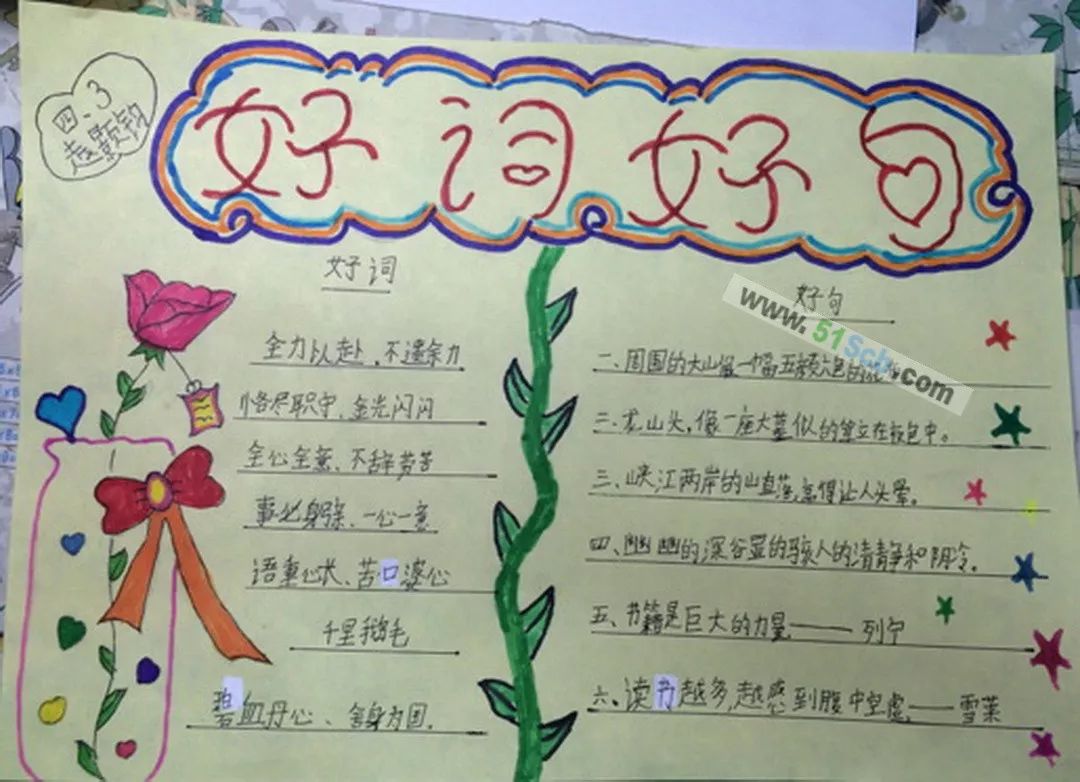 四.3
好词好句
好词
好句
www.51Sch .com
全力以赴、不遗余力
一、周围的大山像一幅五颜六色的
恪尽职守、金光闪闪
二、龙山头,像一座大墓似的耸立在 色中。
全心全意、不辞劳苦
三、峡江两岸的山直 得让人头晕。
事必躬亲、一心一意
四、幽幽的深谷显的骇人的清静和阴冷。
语重心长、苦口婆心
五、书籍是巨大的力量——列宁
千里鹅毛
六、读书越多,越感到腹中空虚——雪莱
碧血丹心、舍身为国。